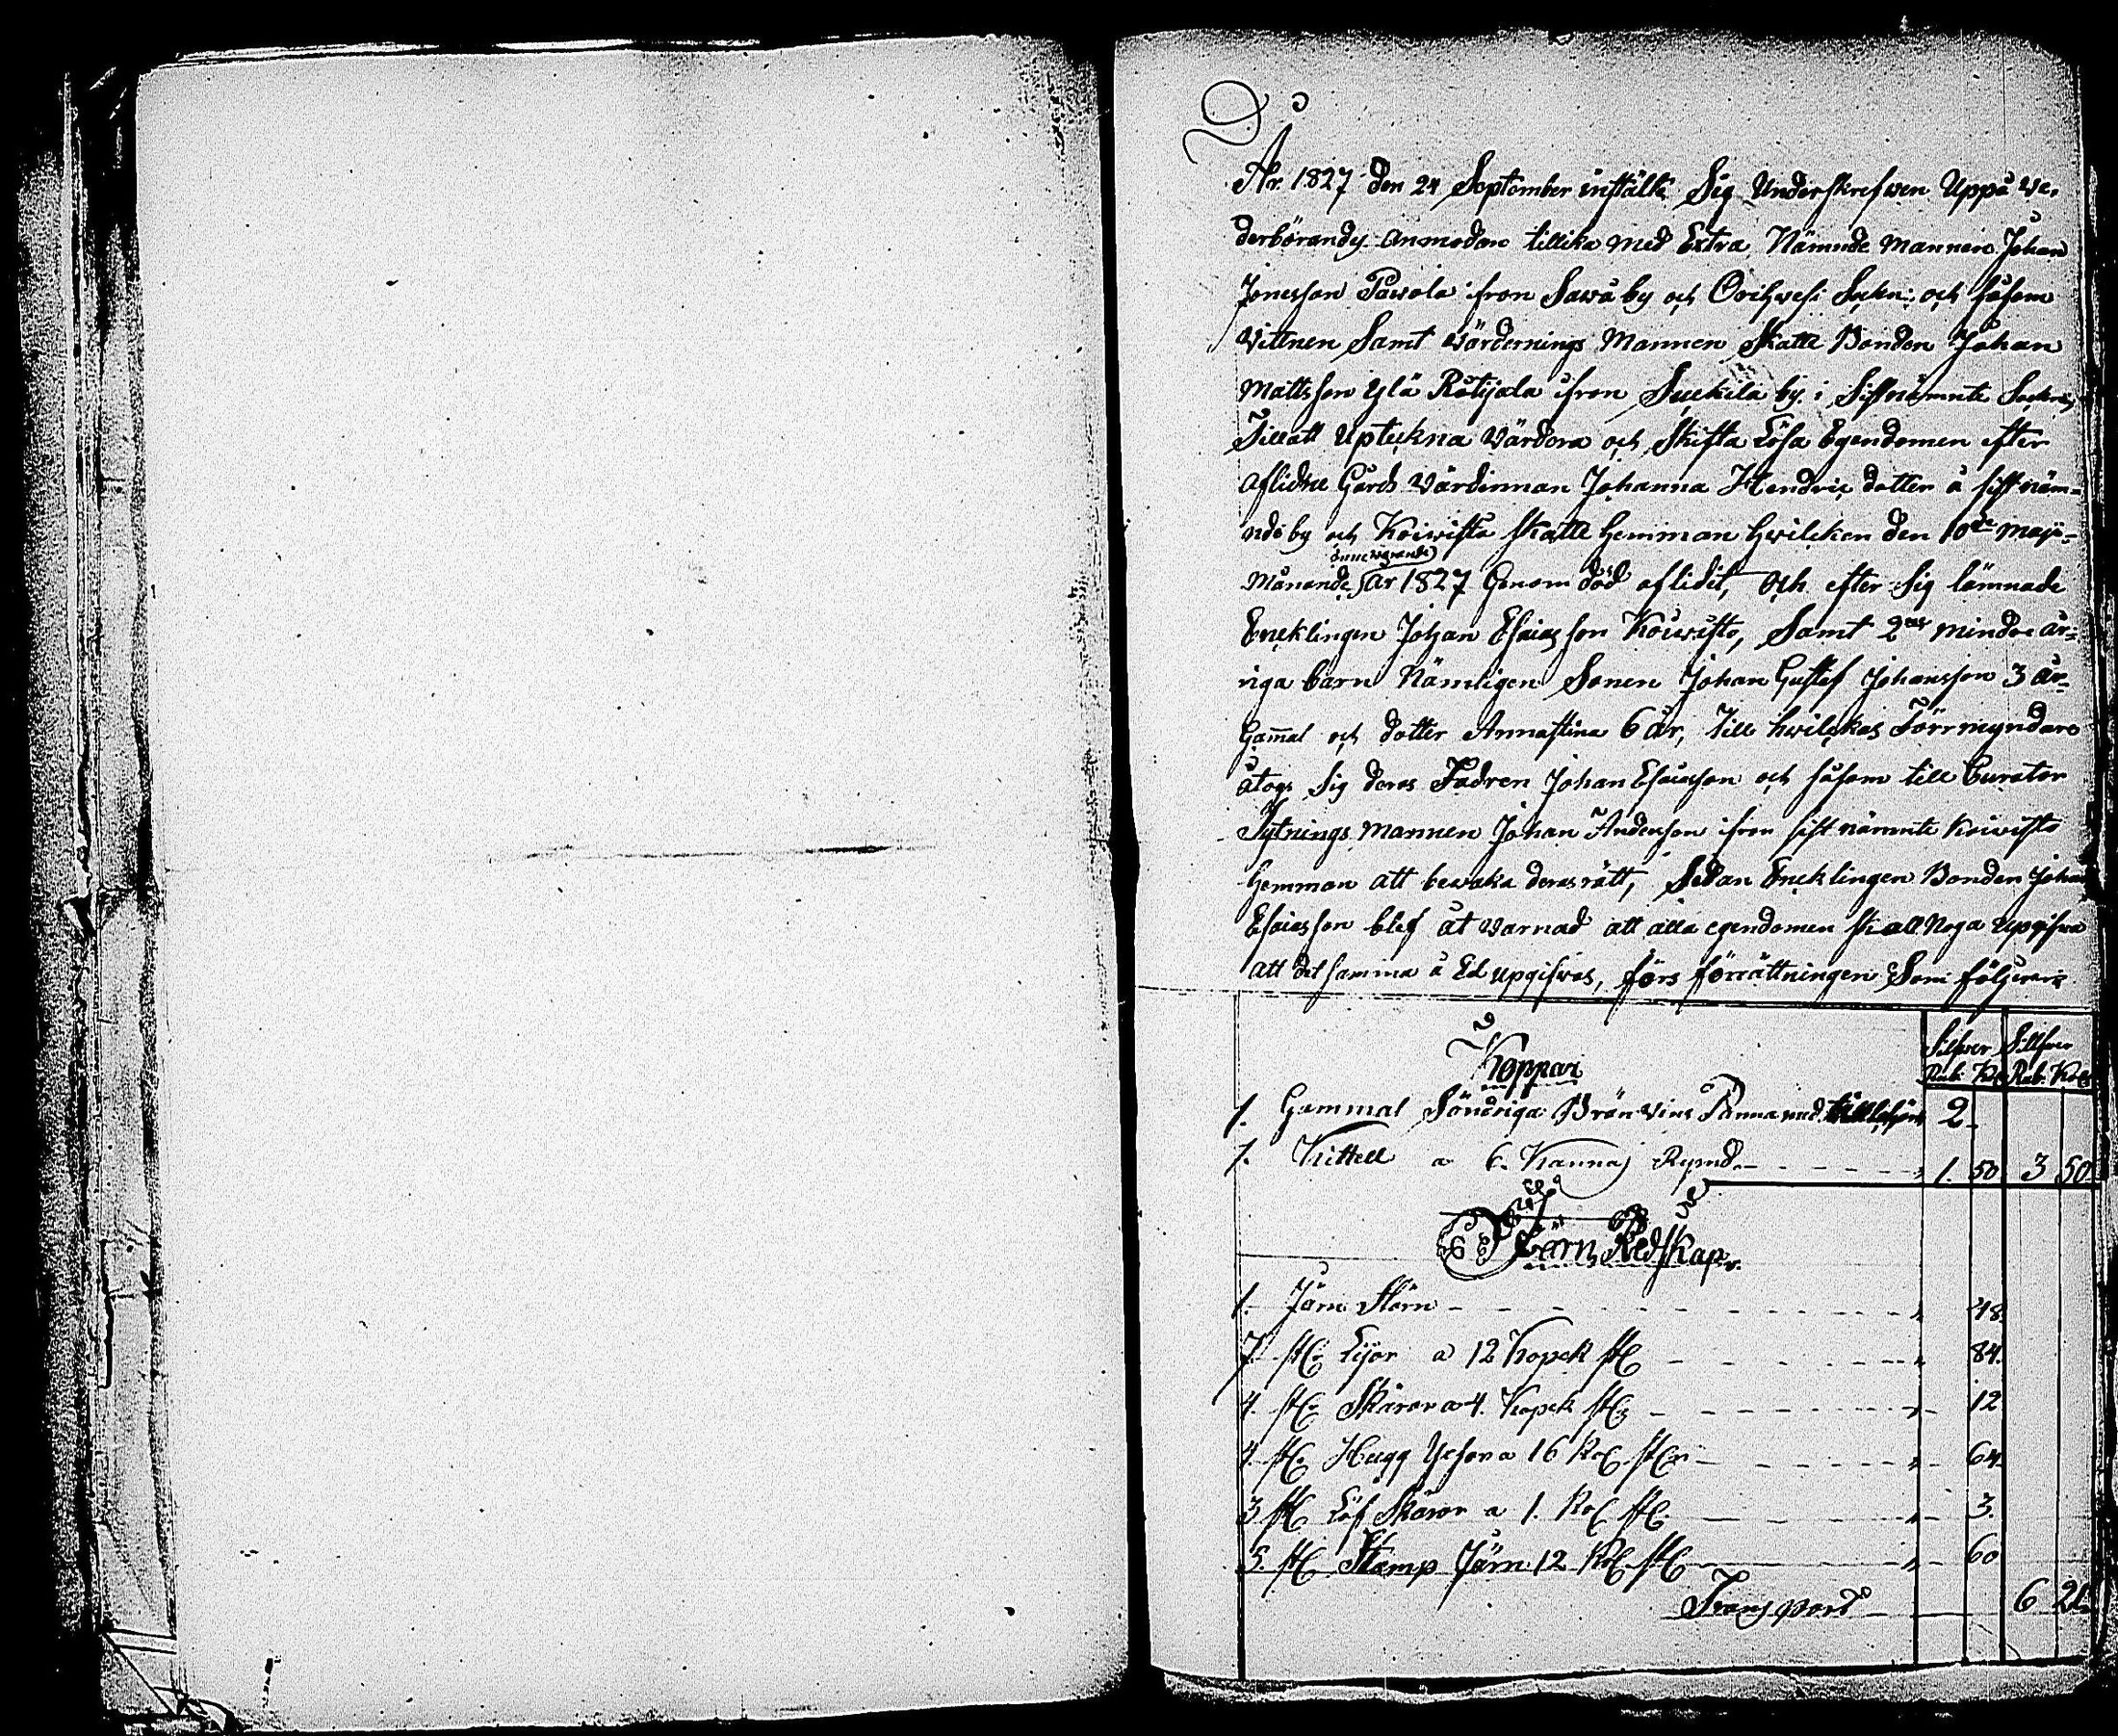 År 1827 den 24 September instälte Sig Underskrefwen Uppå we-
derbörandes anmodan tillika med Extra Nämnde mannen Johan
Jonesson Pawola ifron Sawå by och Orihwesi Sokn; och såsom
Vittnen Samt Värdernings Mannen Skatte Bonden Johan
Mattsson Ylä Rötijala ifron Suckila by i Sistnämnte Sockn,
Till att Uptekna Värdera och Skifta Lösa Egendomen efter
aflidne Gårds Värdinnan Johanna Hendric dotter å sistnäm-
nde by och Koiwisto Skatte Hemman Hwilcken den 10de Maji-
innewarande
Månande År 1827 Genom död aflidit, och efter Sig lämnade
Encklingen Johan Esaiasson Koiwisto, Samt 2ne mindre år-
riga barn Nämligen Sonen Johan Gustef Johansson 3 År-
Gammal och dotter Annastina 6 år, till hwilckas Förrmyndare
åtogs Sig deras Fadren Johan Esaiasson och såsom till Curator
Sytnings mannen Johan Anderson ifron sist nämnte Koiwisto
Hemman att bewaka deras rätt, Sedan Encklingen Bonden Johan
Esaiasson blef åt varnad att alla egendomen skall Noga Upgifwa
att det samma å Ed upgifwas, förs förrättningen Som följer
Silfwer Sillfwer
Rub. Ko Rub. Ko
Koppar
1. Gammal Söndriga Brönvins Panna med 2
1. Kittell a 6. Kannas Rymd 1. 50 3 50
Järn Redskap
1. Järn Störn 48
7. st: Lijor a 12 Kopek st 84.
4. st: Skäror a 4. Kopek st 12
4. st. Hugg Yxor a 16 Ko st 64
3 st Löf Skäror a 1. Ko st 3.
5. st Stamp Järn 12 Ko st 60
Transport 6 21